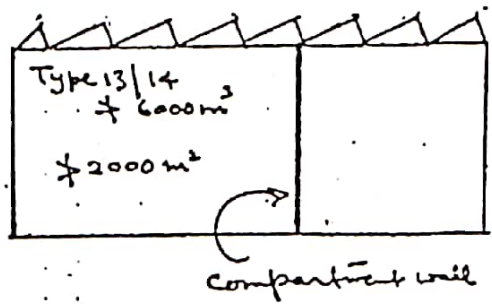 Type 13/14
≯ 6000 m³
≯ 2000 m²
compartment wall